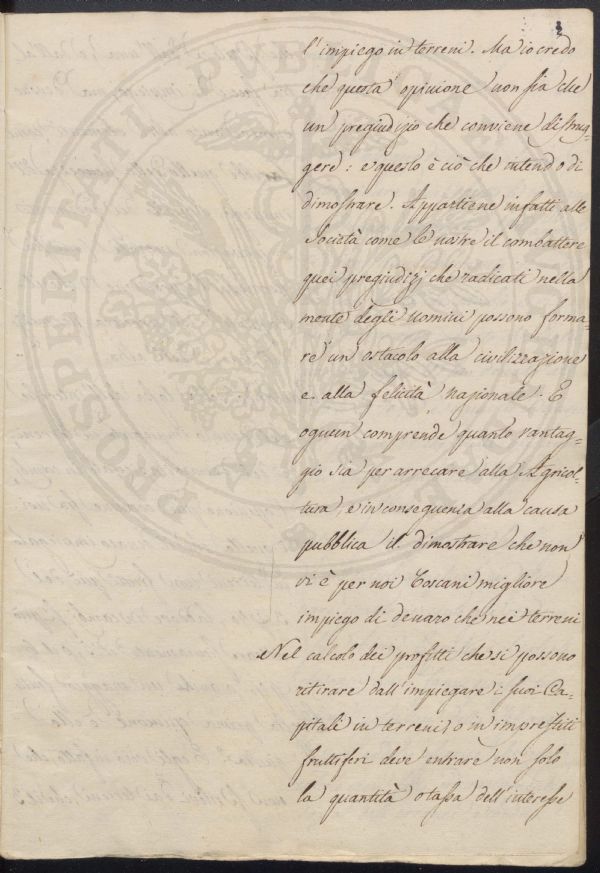 l'impiego in terreni. Ma io credo
che questa opinione non sia che
un pregiudizio che conviene distrug=
gere: e questo è ciò che intendo di
dimostrare. Appartiene infatti alle
Società come le nostre il combattere
quei pregiudizj che radicati nella
mente degli uomini possono forma=
re un ostacolo alla civilizzazione
e alla felicità nazionale. E
ognun comprende quanto vantag=
gio sia per arrecare alla Agricol=
tura, e in conseguenza alla causa
pubblica il dimostrare che non
vi è per noi Toscani migliore
impiego di denaro che nei terreni
Nel calcolo dei profitti che si possono
ritirare dall'impiegare i suoi Ca=
pitali in terreni, o in imprestiti
fruttiferi deve entrare non solo
la quantità o tassa dell'interesse
PROSPERITATI PUBLICAE